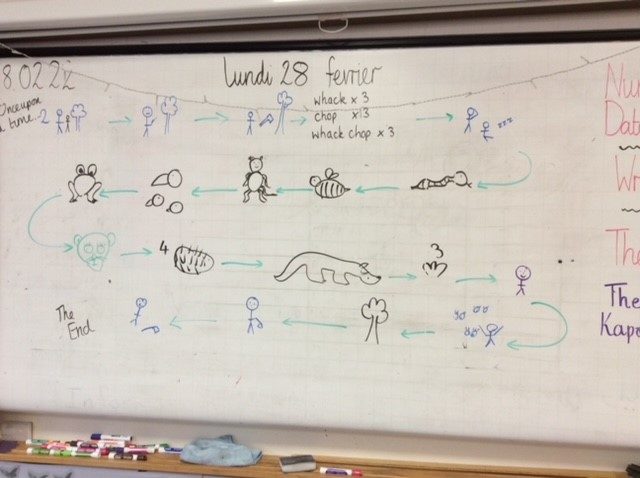 8.02.22
lundi 28 fevrier
Once upon
a time..2
whack x 3
chop x 3
whack chop x 3
zzz
4
3
The
End
Nu
Dat
Wr
The
The
Kapo